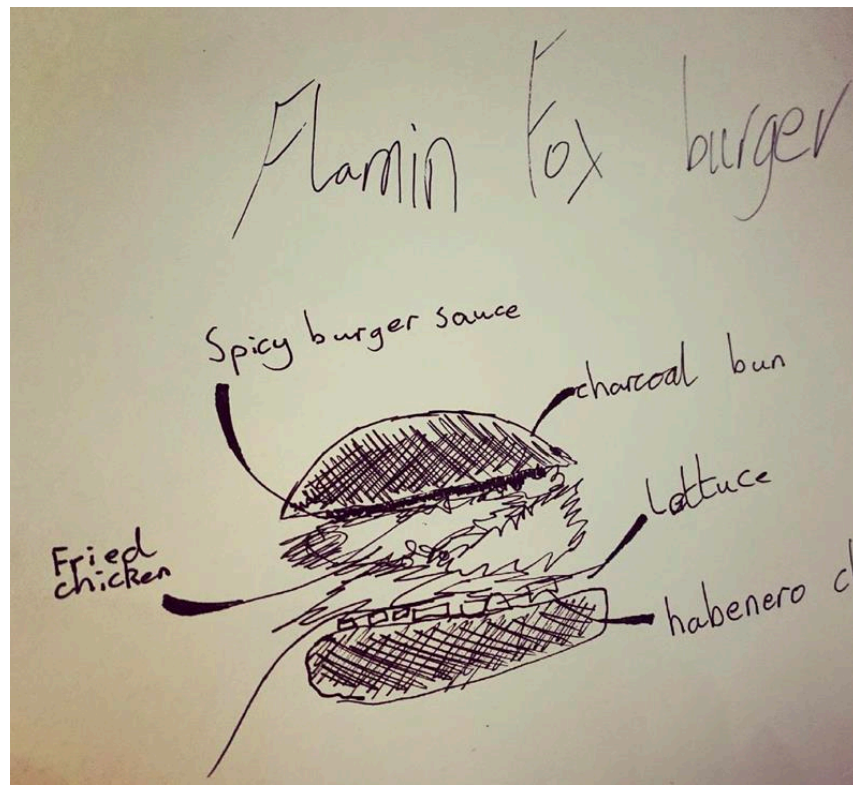 Flamin Fox burger
Spicy burger sauce
charcoal bun
Lettuce
Fried
chicken
habenero